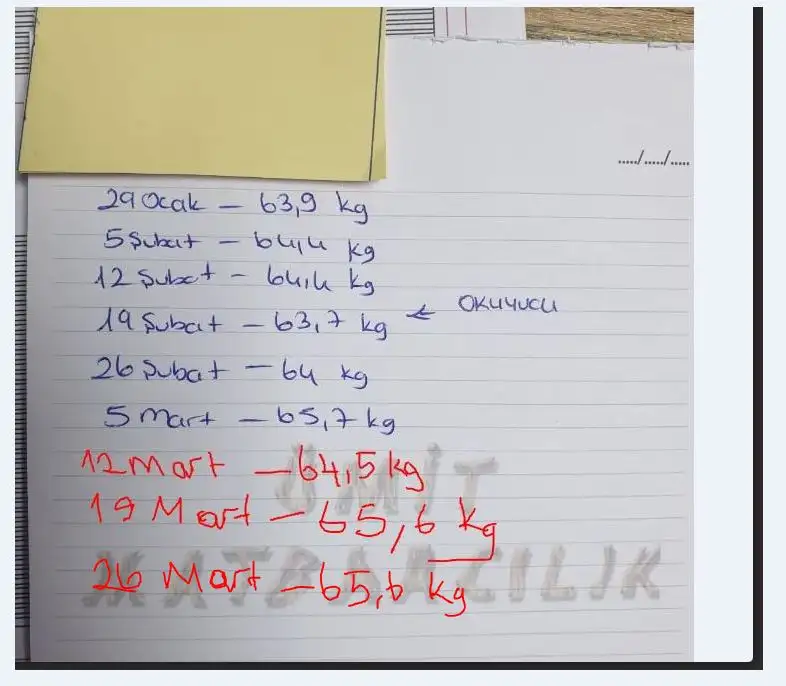 ...../...../.....
29 Ocak – 63,9 kg
5 Şubat – 64,4 kg
12 Şubat – 64,4 kg
19 Şubat – 63,7 kg ← OKUYUCU
26 Şubat – 64 kg
5 Mart – 65,7 kg
12 Mart – 64,5 kg
19 Mart – 65,6 kg
26 Mart – 65,6 kg
ÜMİT
MATBAACILIK